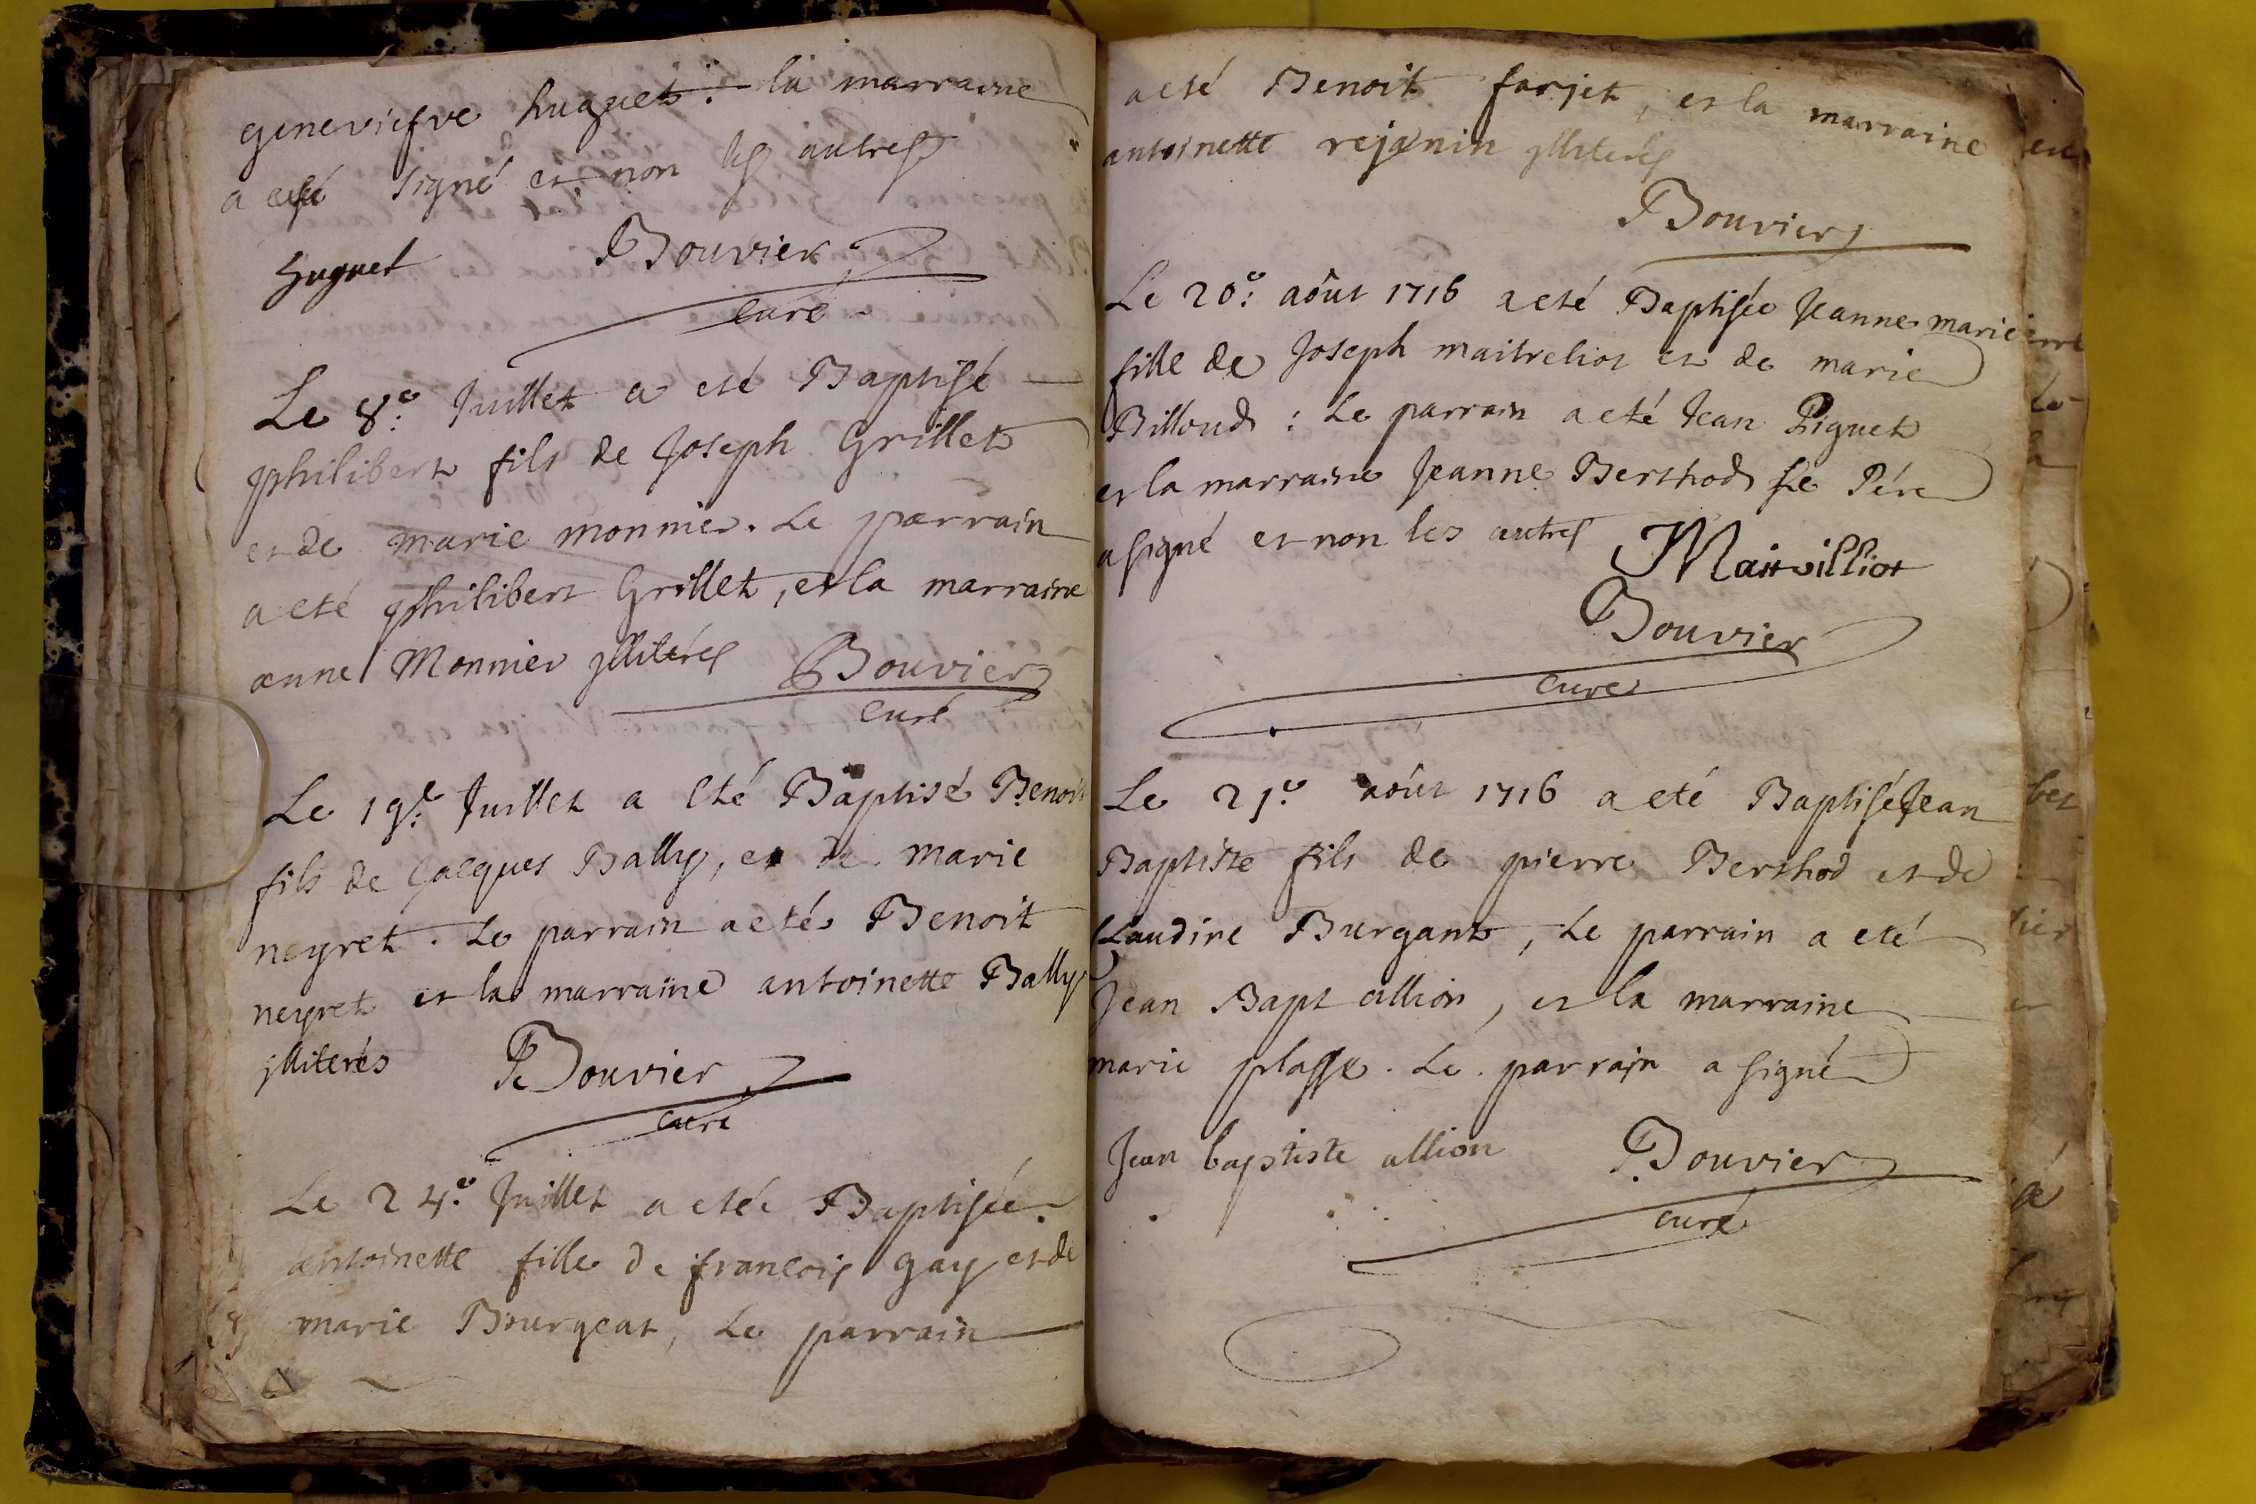 geneviefve huguet : la marraine
a signé et non les autres
huguet Bouvier
curé
Le 8e: Juillet a eté Baptisé
philibert fils de Joseph Grillet
et de marie monnier. Le parrain
a eté philibert Grillet, et la marraine
anne Monnier jlliterés Bouvier
curé
Le 19e: Juillet a eté Baptisé Benoit
fils de Jacques Bally, et de marie
neyret. Le parrain a eté Benoit
neyret et la marraine antoinette Bally
jlliterés Bouvier
curé
Le 24e: Juillet a etée Baptisée
antoinette fille de françois gay et de
marie Bourgeat, Le parrain
a eté Benoit farjet, et la marraine
antoinette rejanin jlliterés
Bouvier
Le 20e: aôut 1716 a eté Baptisée Jeanne marie
fille de Joseph maitreliot et de marie
Billoud : Le parrain a eté Jean Piguet
et la marraine Jeanne Berthod Le Pére
a signé et non les autres Maitrilliot
Bouvier
curé
Le 21e: aôut 1716 a eté Baptisé Jean
Baptiste fils de pierre Berthod et de
Claudine Burgant, Le parrain a eté
Jean Bapt allion, et la marraine
marie plasse. Le parrain a signé
Jean baptiste allion Bouvier
curé